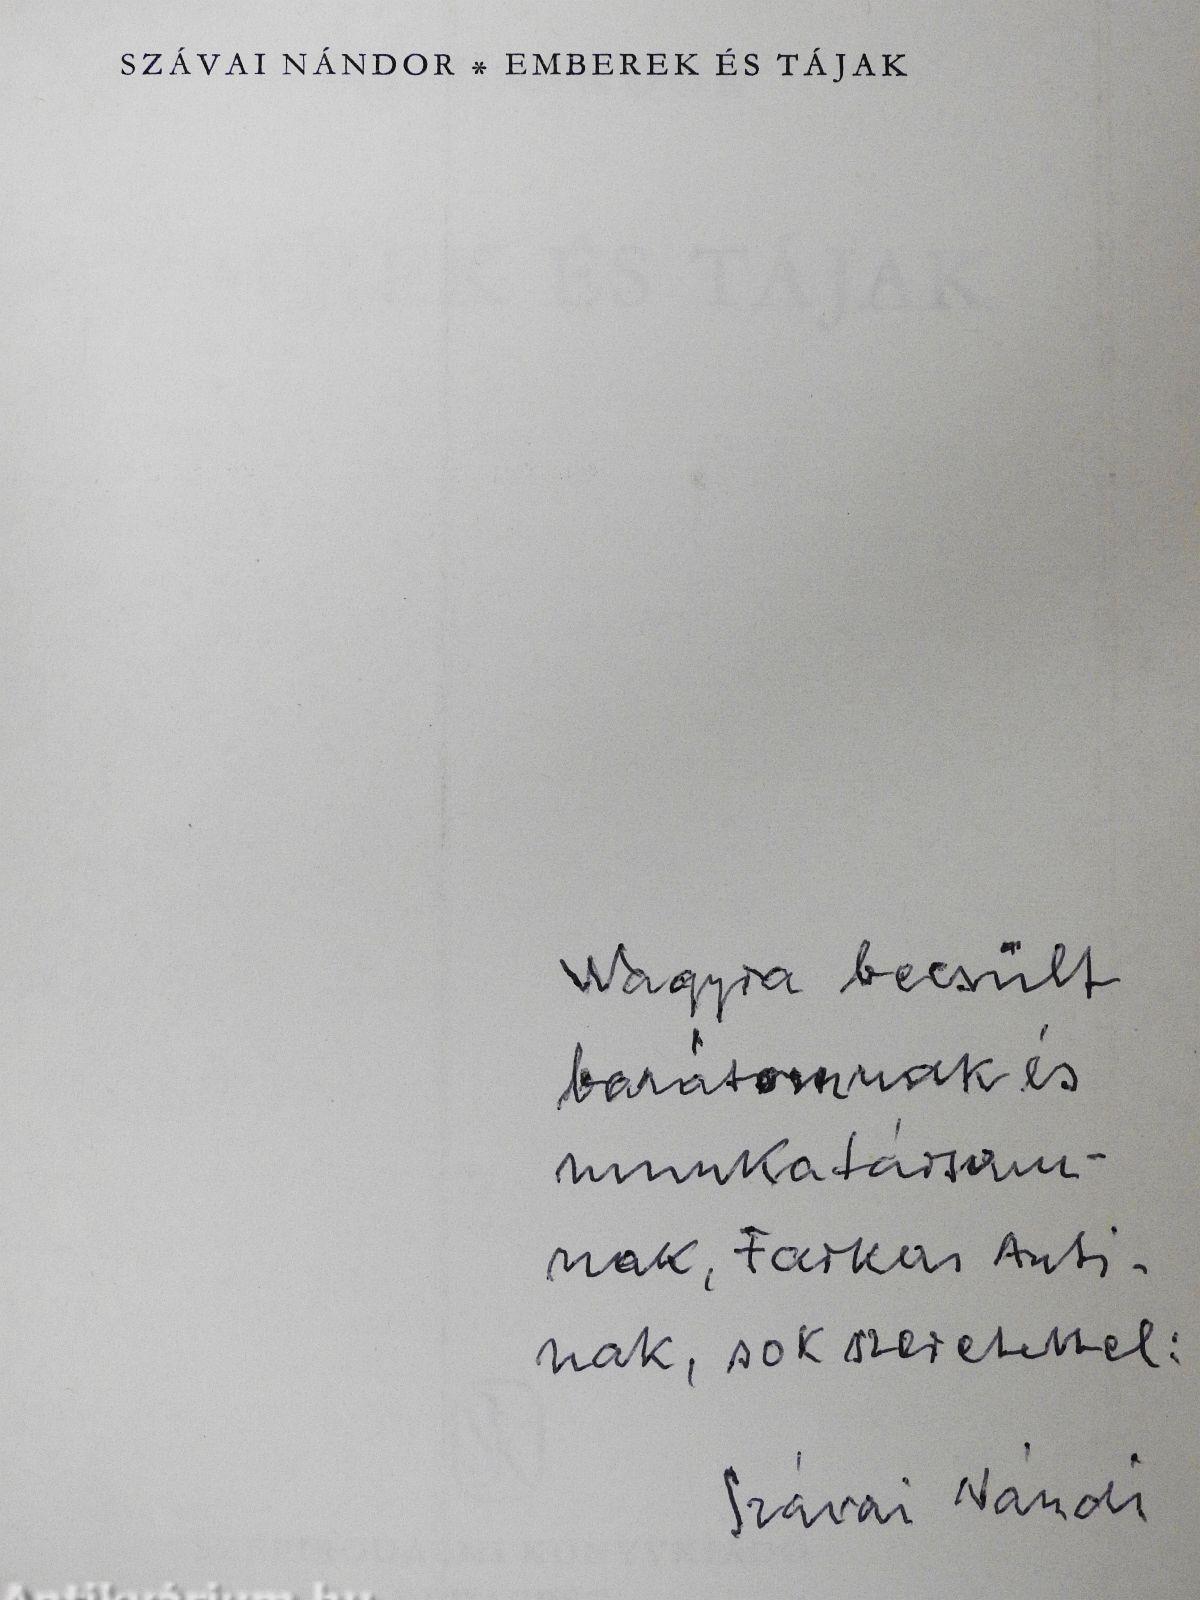 SZÁVAI NÁNDOR * EMBEREK ÉS TÁJAK
ÉS TÁJAK
Nagyra becsült
barátomnak és
munkatársam-
nak, Farkas Anti-
nak, sok szeretettel:
Szávai Nándi
Antikvárium.hu